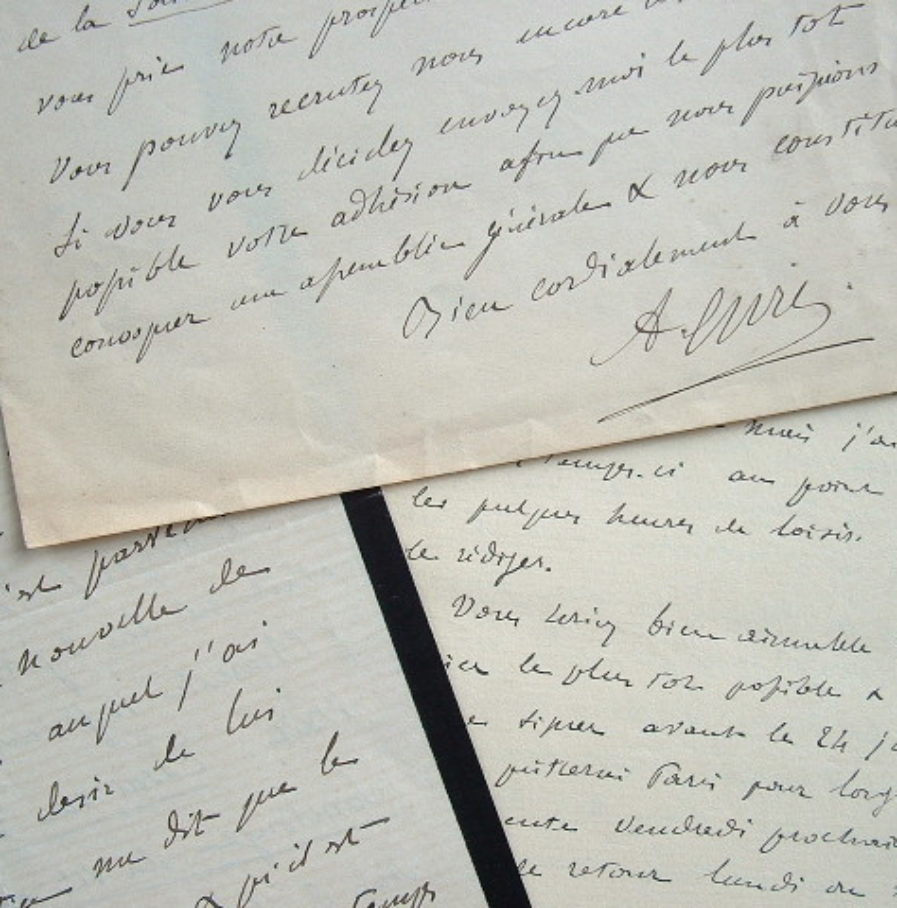 de la
vous prie notre
Vous pouvez recruter nous encore
Si vous vous décidez envoyez-moi le plus tôt
possible votre adhésion afin que nous puissions
convoquer une assemblée générale & nous constitu
Bien cordialement à vous
mais j'ai
au point
les quelques heures de loisir
le rédiger.
Vous seriez bien aimable
le plus tot possible &
signer avant le 24 j
Paris pour long
Vendredi prochai
retour lundi ou
est
nouvelle de
auquel j'ai
desir de lui
me dit que le
& qu'il est
temps